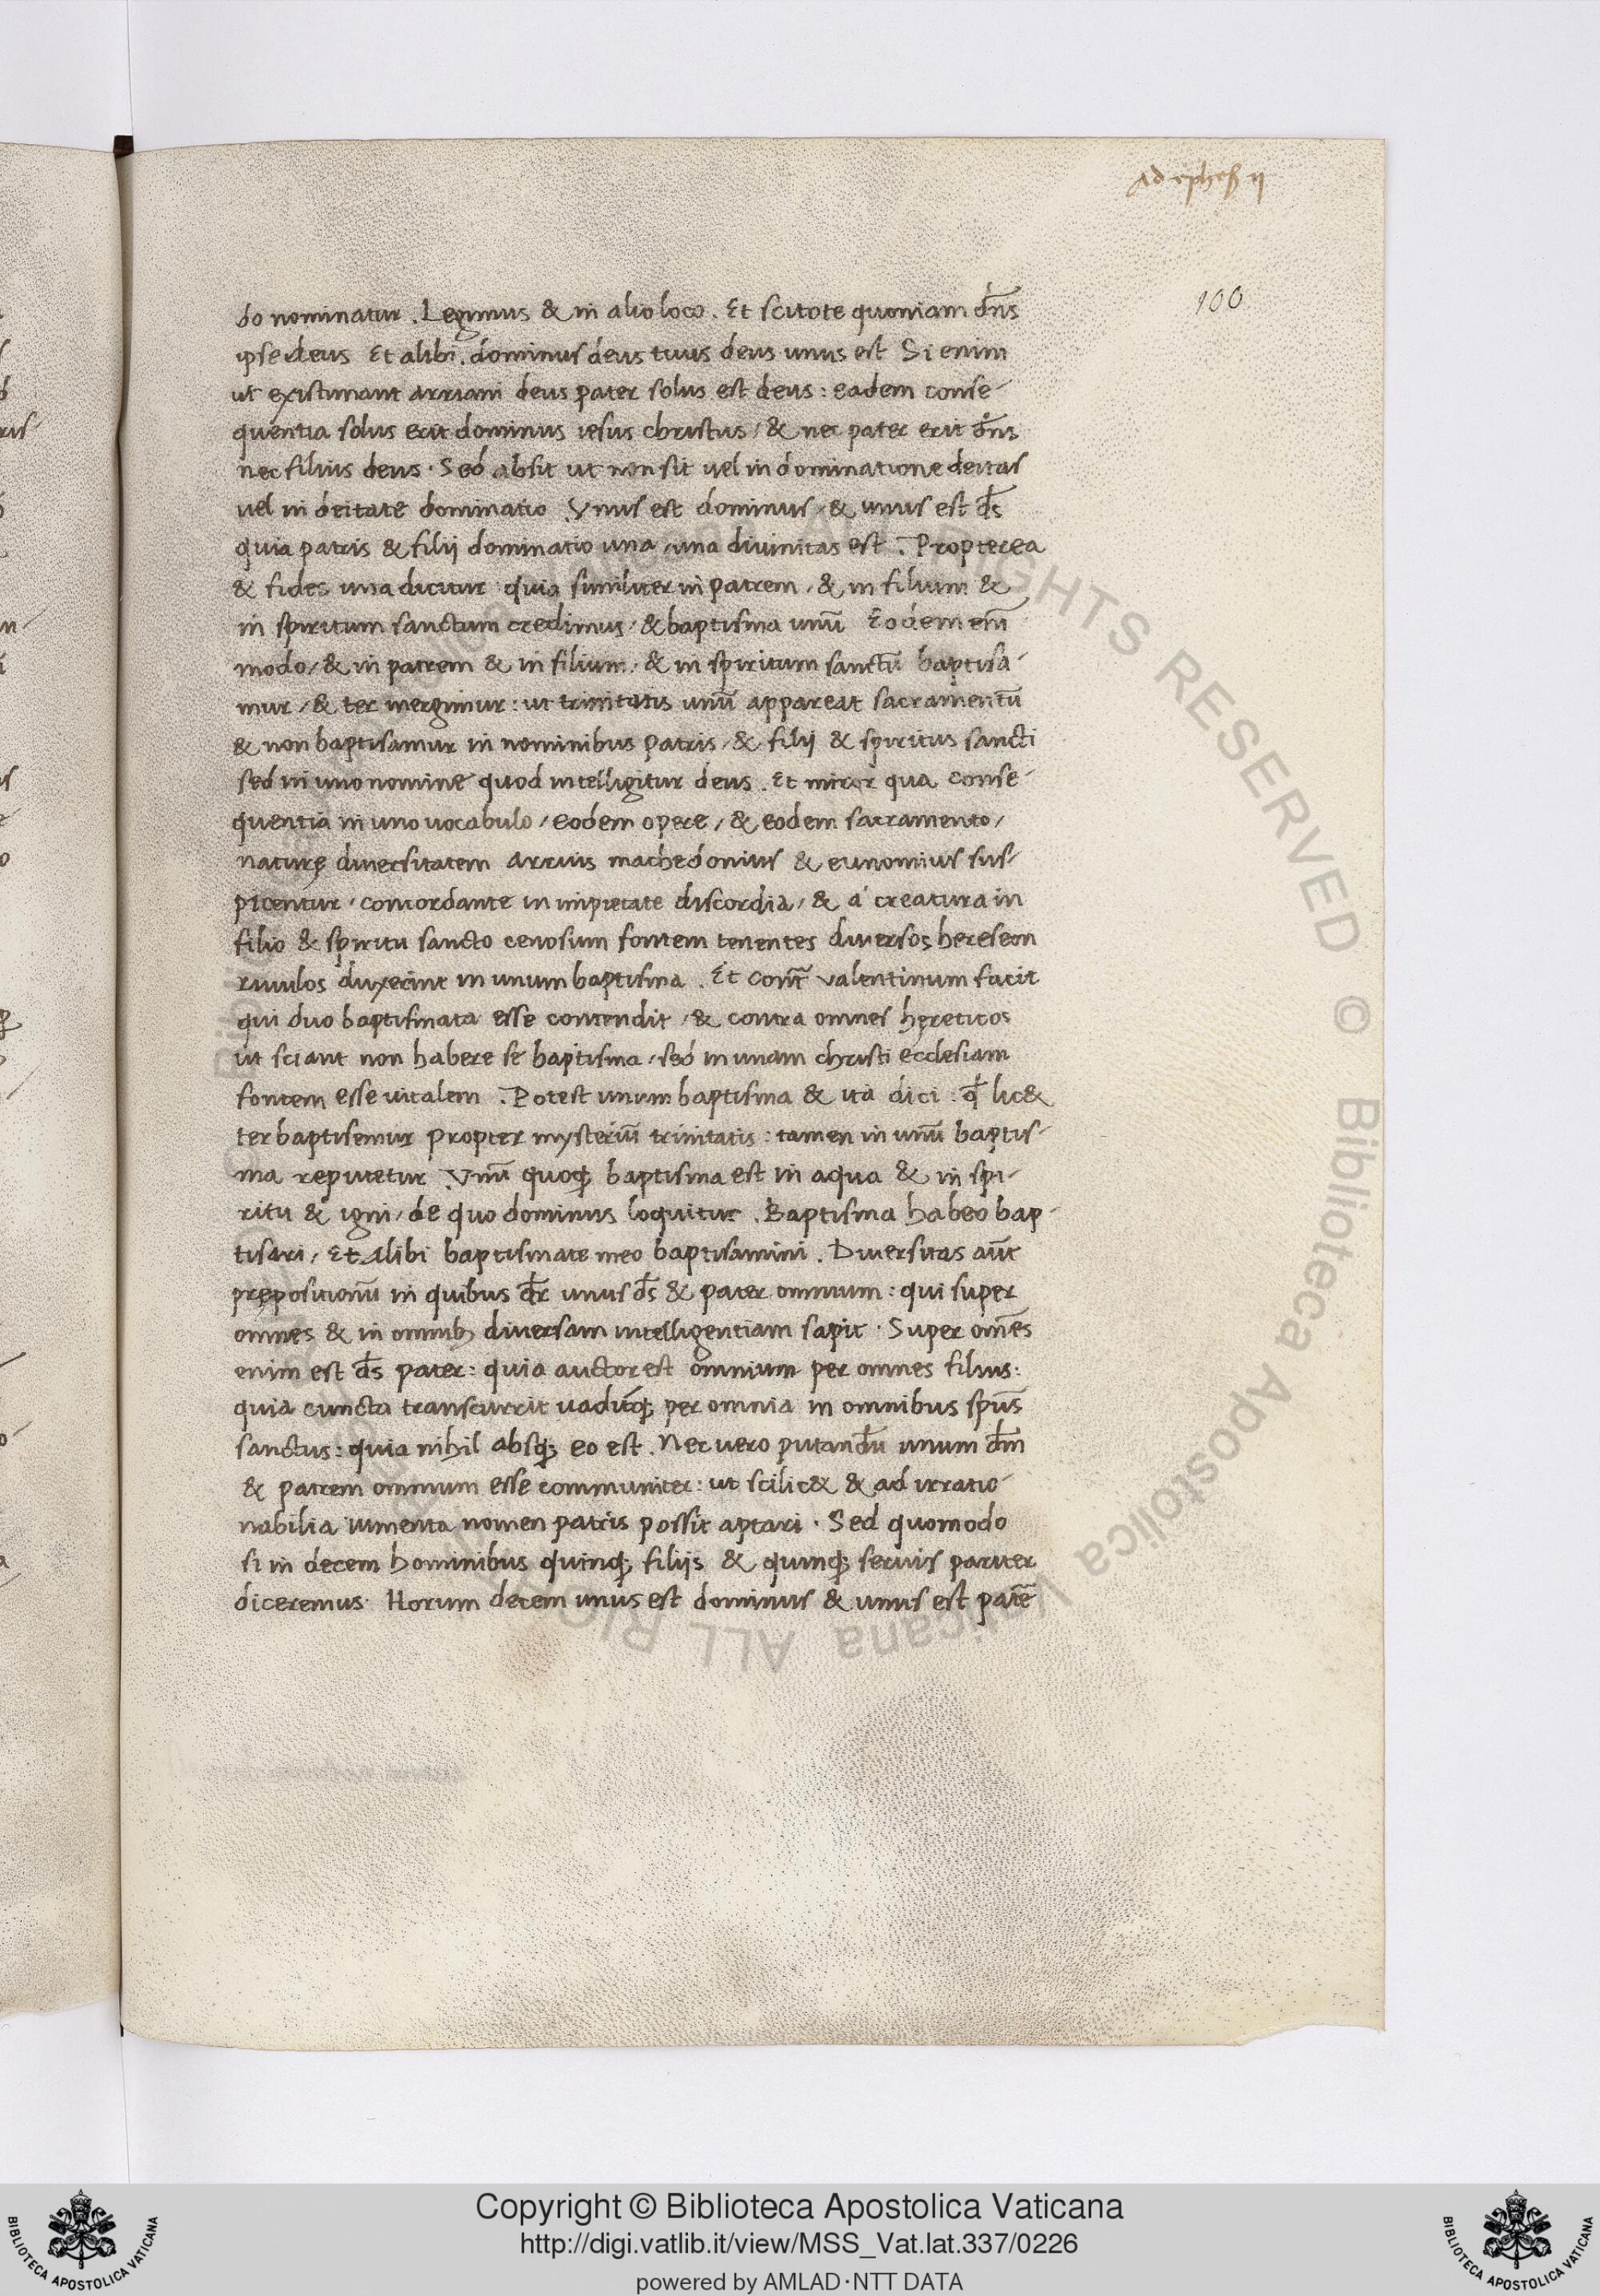 Ad ephes ij
100
do nominatur . Legimus & in alio loco . Et scitote quoniam dn̄s
ipse deus Et alibi . dominus deus tuus deus unus est Si enim
ut existimant arriani deus pater solus est deus : eadem conse-
quentia solus erit dominus iesus christus / & nec pater erit dn̄s
nec filius deus . Sed absit ut non sit uel in dominatione deitas
uel in deitate dominatio . Vnus est dominus / & unus est ds̄
quia patris & filij dominatio una / una diuinitas est . Propterea
& fides una dicitur quia similiter in patrem / & in filium &
in spiritum sanctum credimus / & baptisma unū Eodem em̄
modo / & in patrem & in filium / & in spiritum sanctū baptisa-
mur / & ter mergimur : ut trinitatis unū appareat sacramentū
& non baptisamur in nominibus patris / & filij & spiritus sancti
sed in uno nomine quod intelligitur deus . Et miror qua conse-
quentia in uno uocabulo / eodem opere / & eodem sacramento /
naturę diuersitatem arrius machedonius & eunomius sus-
picentur / concordante in impietate discordia / & a creatura in
filio & spiritu sancto cenosum fontem tenentes diuersos hereseon
riuulos duxerint in unum baptisma . Et cont̄ valentinum facit
qui duo baptismata esse contendit / & contra omnes hęreticos
ut sciant non habere se baptisma / sed in unam christi ecclesiam
fontem esse uitalem . Potest unum baptisma & ita dici : qd̄ lic&
ter baptisemur propter mysteriū trinitatis : tamen in unū baptis-
ma reputetur . Vnū quoq; baptisma est in aqua & in spi-
ritu & igni / de quo dominus loquitur . Baptisma habeo bap-
tisari / Et alibi baptismate meo baptisamini . Diuersitas aūt
prępositionū in quibus dr̄ unus ds̄ & pater omnium : qui super
omnes & in omnib; diuersam intelligentiam sapit . Super om̄es
enim est ds̄ pater : quia auctor est omnium per omnes filius :
quia cuncta transcurrit uaditq; per omnia in omnibus spūs
sanctus : quia nihil absq; eo est . Nec uero putandū unum dm̄
& patrem omnium esse communiter : ut scilic& & ad irratio-
nabilia iumenta nomen patris possit aptari . Sed quomodo
si in decem hominibus quinq; filijs & quinq; seruis pariter
diceremus . Horum decem unus est dominus & unus est patē
© Biblioteca Apostolica Vaticana ALL RIGHTS RESERVED
Copyright © Biblioteca Apostolica Vaticana
http://digi.vatlib.it/view/MSS_Vat.lat.337/0226
powered by AMLAD·NTT DATA
BIBLIOTECA APOSTOLICA VATICANA
BIBLIOTECA APOSTOLICA VATICANA